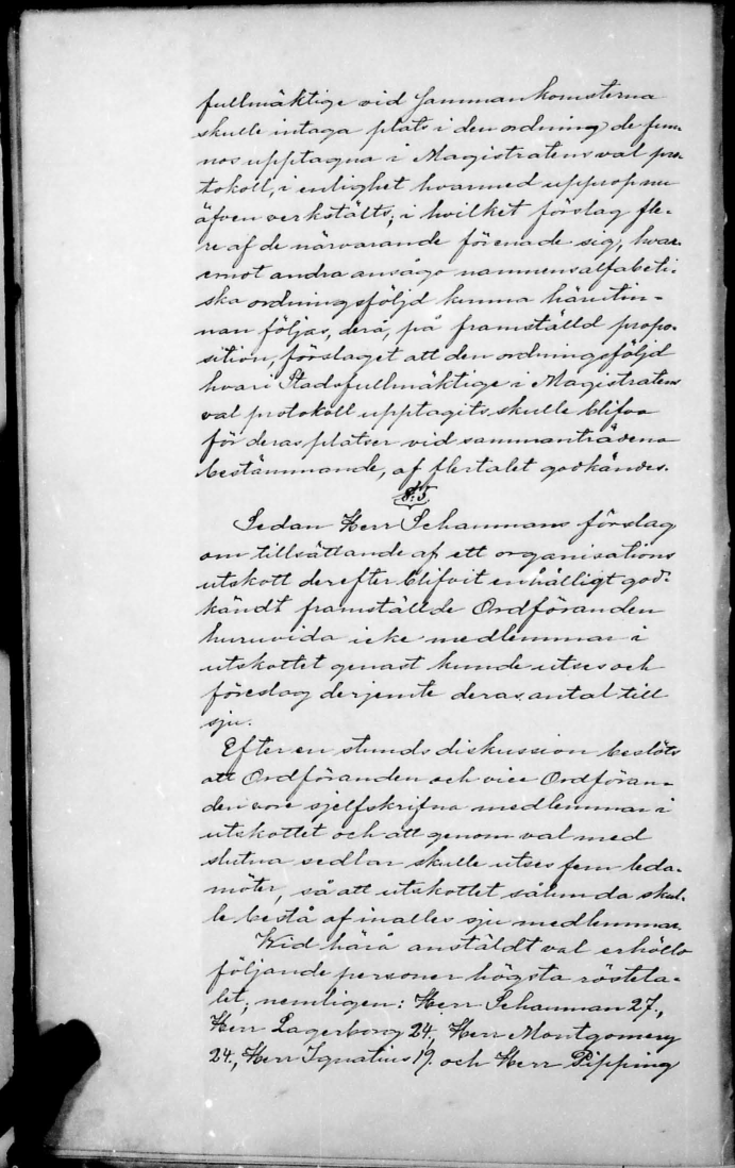 fullmäktige vid sammankomsterna
skulle intaga plats i den ordning de fun-
nos upptagna i Magistratens val pro-
tokoll, i enlighet hvarmed upprop nu
äfven verkstälts; i hvilket förslag fle-
re af de närvarande förenade sig, hvar-
emot andra ansågo namnens alfabeti-
ska ordningsföljd kunna häruti in-
nan följas, derå, på framställd propo-
sition, förslaget att den ordningsföljd
hvari Stadsfullmäktige i Magistratens
val protokoll upptagits skulle blifva
för deras platser vid sammanträdena
bestämmande, af flertalet godkändes.
§:5.
Sedan Herr Schaumans förslag
om tillsättande af ett organisations
utskott derefter blifvit enhälligt god-
kändt framställde Ordföranden
huruvida icke medlemmar i
utskottet genast kunde utses och
föreslog derjemte deras antal till
sju.
Efter en stunds diskussion beslöts
att Ordföranden och vice Ordföran-
den vore sjelfskrifna medlemmar i
utskottet och att genom val med
slutna sedlar skulle utses fem leda-
möter, så att utskottet sålunda skul-
le bestå af inalles sju medlemmar.
Vid härå anstäldt val erhöllo
följande personer högsta rösteta-
let; nemligen: Herr Schauman 27.,
Herr Lagerborg 24., Herr Montgomery
24., Herr Ignatius 19. och Herr Pipping